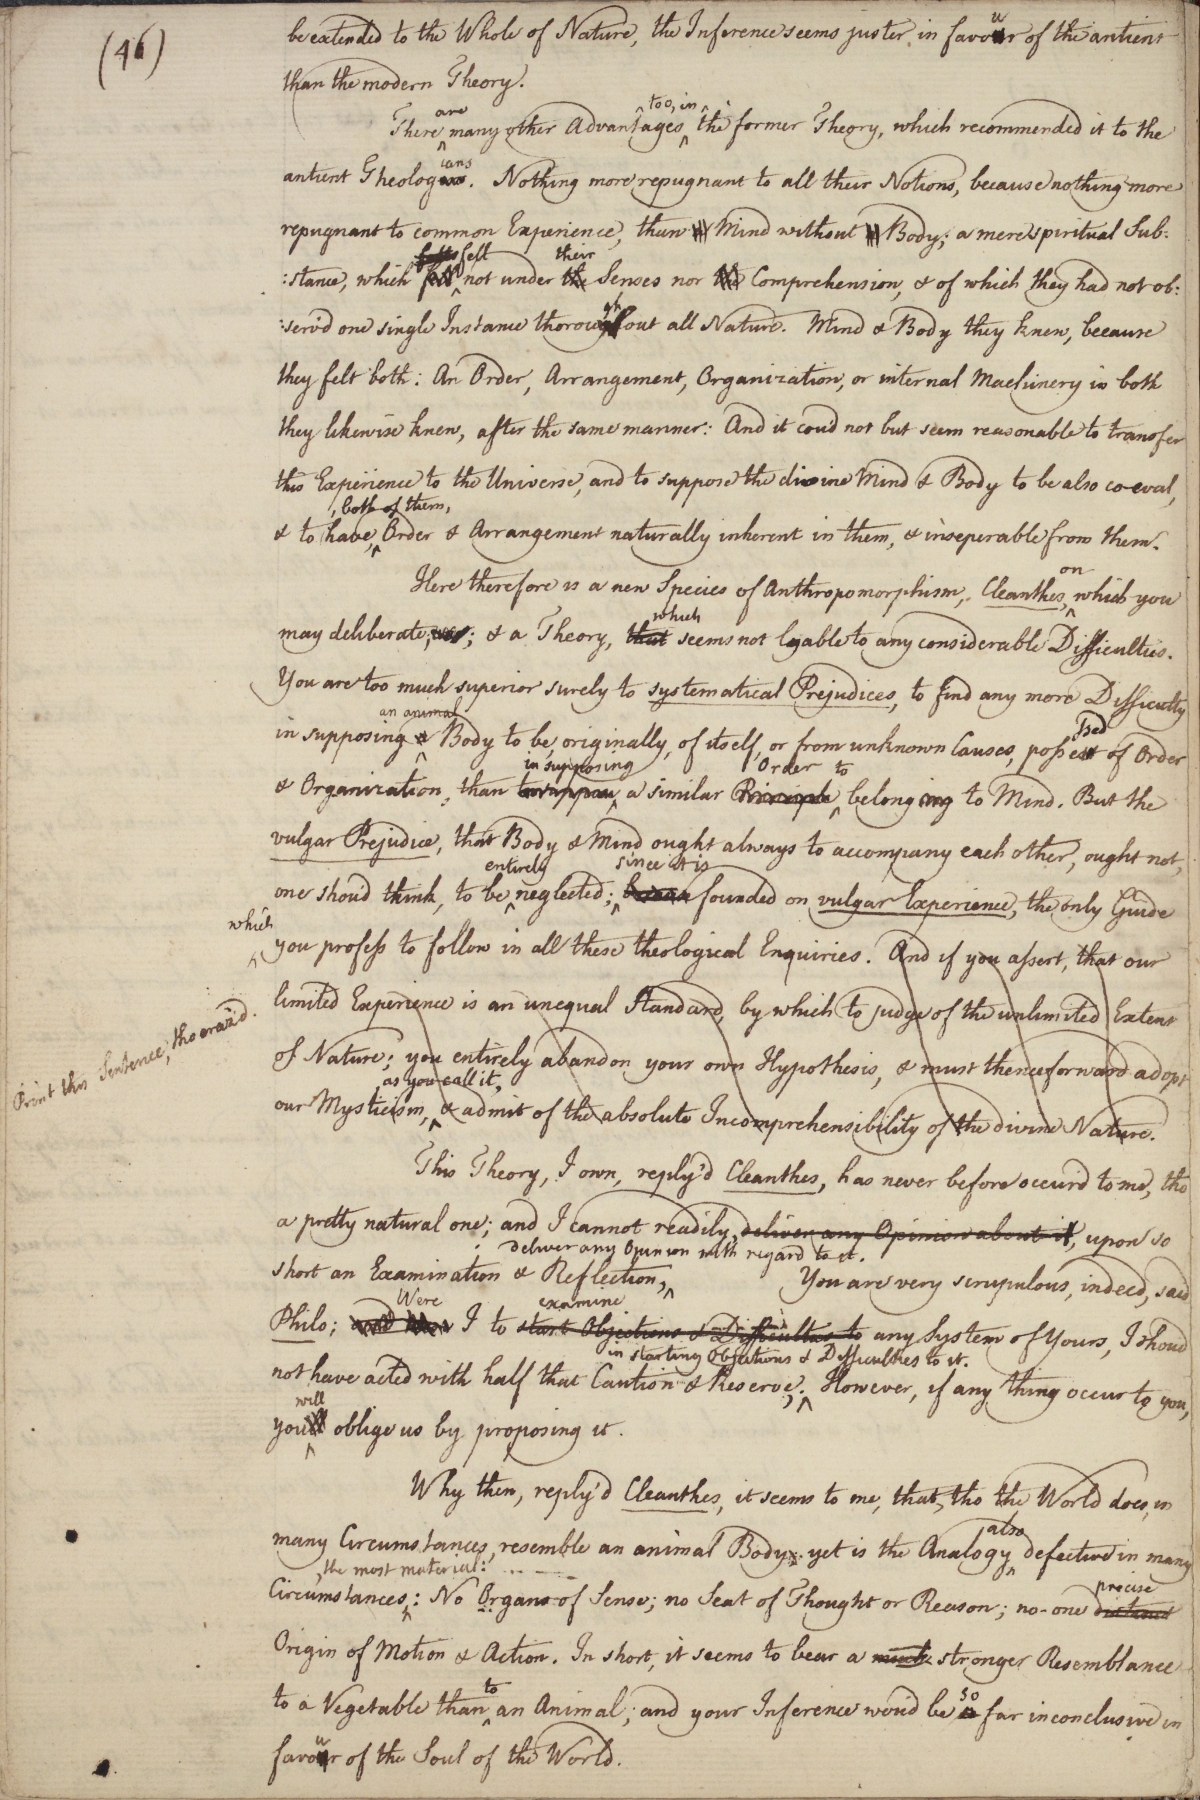 (46)
be extended to the Whole of Nature, the Inference seems juster in favour of the antient
than the modern Theory.
There are many other Advantages, too, in the former Theory, which recommended it to the
antient Theologians. Nothing more repugnant to all their Notions, because nothing more
repugnant to common Experience, than Mind without Body; a mere spiritual Sub:
:stance, which fell not under their Senses nor Comprehension, & of which they had not ob:
:serv'd one single Instance thoroughout all Nature. Mind & Body they knew, because
they felt both: An Order, Arrangement, Organization, or internal Machinery in both
they likewise knew, after the same manner: And it coud not but seem reasonable to transfer
this Experience to the Universe, and to suppose the divine Mind & Body to be also co-eval,
& to have, both of them, Order & Arrangement naturally inherent in them, & inseperable from them.
Here therefore is a new Species of Anthropomorphism, Cleanthes, on which you
may deliberate; & a Theory, that which seems not lyable to any considerable Difficulties.
You are too much superior surely to systematical Prejudices, to find any more Difficulty
in supposing an animal Body to be, originally, of itself, or from unknown Causes, possessed of Order
& Organization, than in supposing a similar Principle Order to belong to Mind. But the
vulgar Prejudice, that Body & Mind ought always to accompany each other, ought not,
one shou'd think, to be entirely neglected; since it is founded on vulgar Experience, the only Guide
which you profess to follow in all these theological Enquiries. And if you assert, that our
limited Experience is an unequal Standard, by which to judge of the unlimited Extent
of Nature; you entirely abandon your own Hypothesis, & must thenceforward adopt
our Mysticism, as you call it, & admit of the absolute Incomprehensibility of the divine Nature.
Print this Sentence, tho eraz'd.
This Theory, I own, reply'd Cleanthes, has never before occur'd to me, tho
a pretty natural one; and I cannot readily, deliver any Opinion about it, upon so
short an Examination & Reflection, deliver any Opinion with regard to it. You are very scrupulous, indeed, said
Philo; Were I to start Objections & Difficultys to examine any System of Yours, I shoud
not have acted with half that Caution & Reserve, in starting Objections & Difficulties to it. However, if any thing occur to you,
you will oblige us by proposing it.
Why then, reply'd Cleanthes, it seems to me, that, tho the World does, in
many Circumstances, resemble an animal Body; yet is the Analogy also defective in many
Circumstances, the most material: No Organs of Sense; no Seat of Thought or Reason; no one distinct precise
Origin of Motion & Action. In short, it seems to bear a much stronger Resemblance
to a Vegetable than to an Animal; and your Inference woud be so far inconclusive in
favour of the Soul of the World.